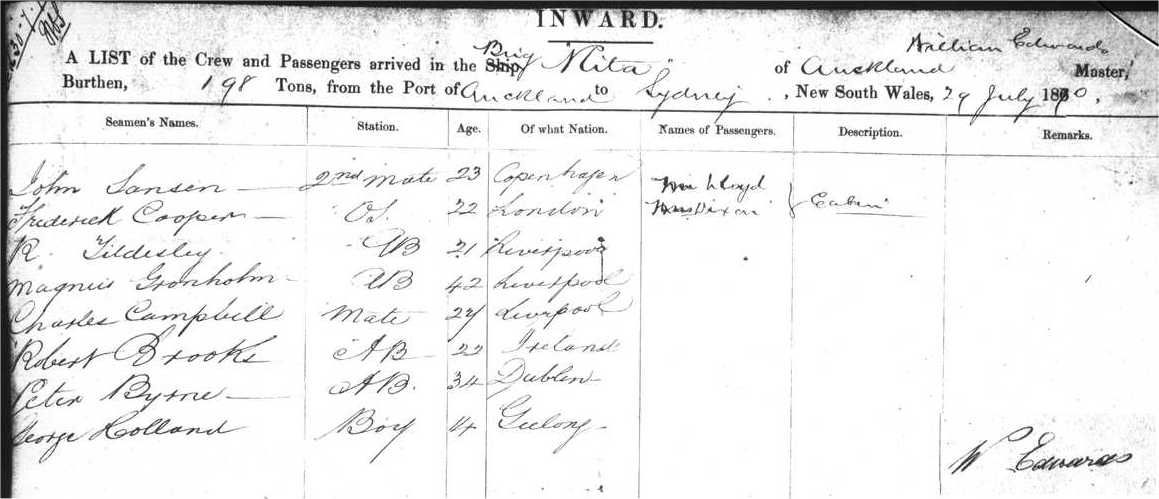 INWARD.
William Edwards
A LIST of the Crew and Passengers arrived in the Ship Brig Rita of Auckland Master,
Burthen, 198 Tons, from the Port of Auckland to Sydney, New South Wales, 29 July 1870,
Seamen's Names. Station. Age. Of what Nation. Names of Passengers. Description. Remarks.
John Jansen 2nd Mate 23 Copenhagen Lloyd
Frederick Cooper OS. 22 London Dixon Cabin
R. Tildesley AB 21 Liverpool
Magnus Gronholm AB 42 Liverpool
Charles Campbell Mate 27 Liverpool
Robert Brooks AB 22 Ireland
Peter Byrne AB. 34 Dublin
George Holland Boy 14 Geelong
W Edwards